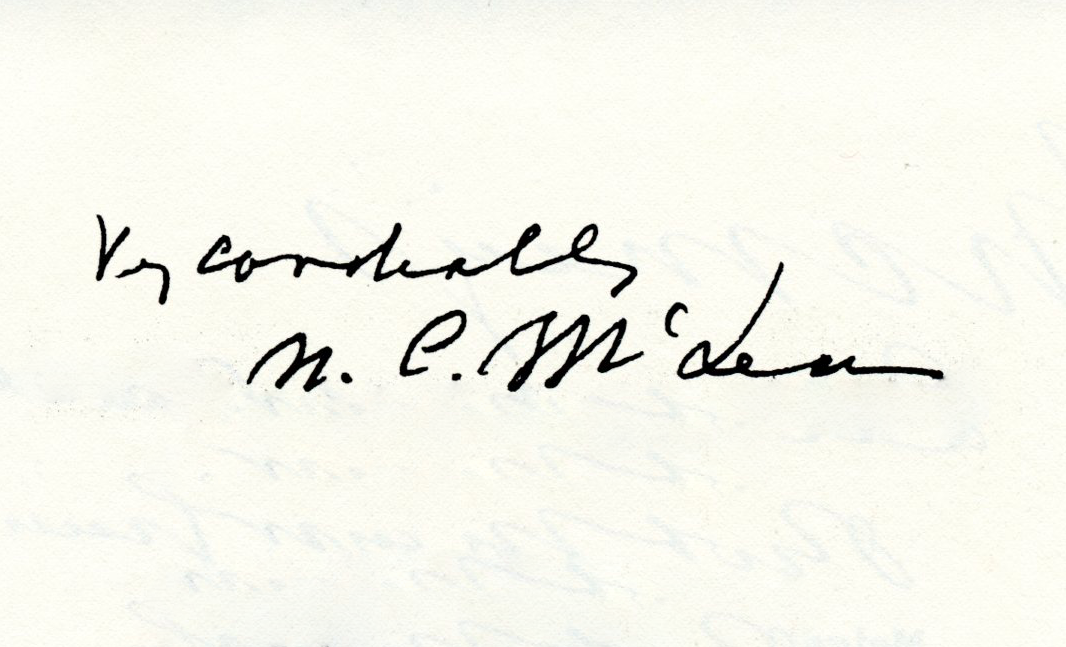 Very cordially
N. C. McLean